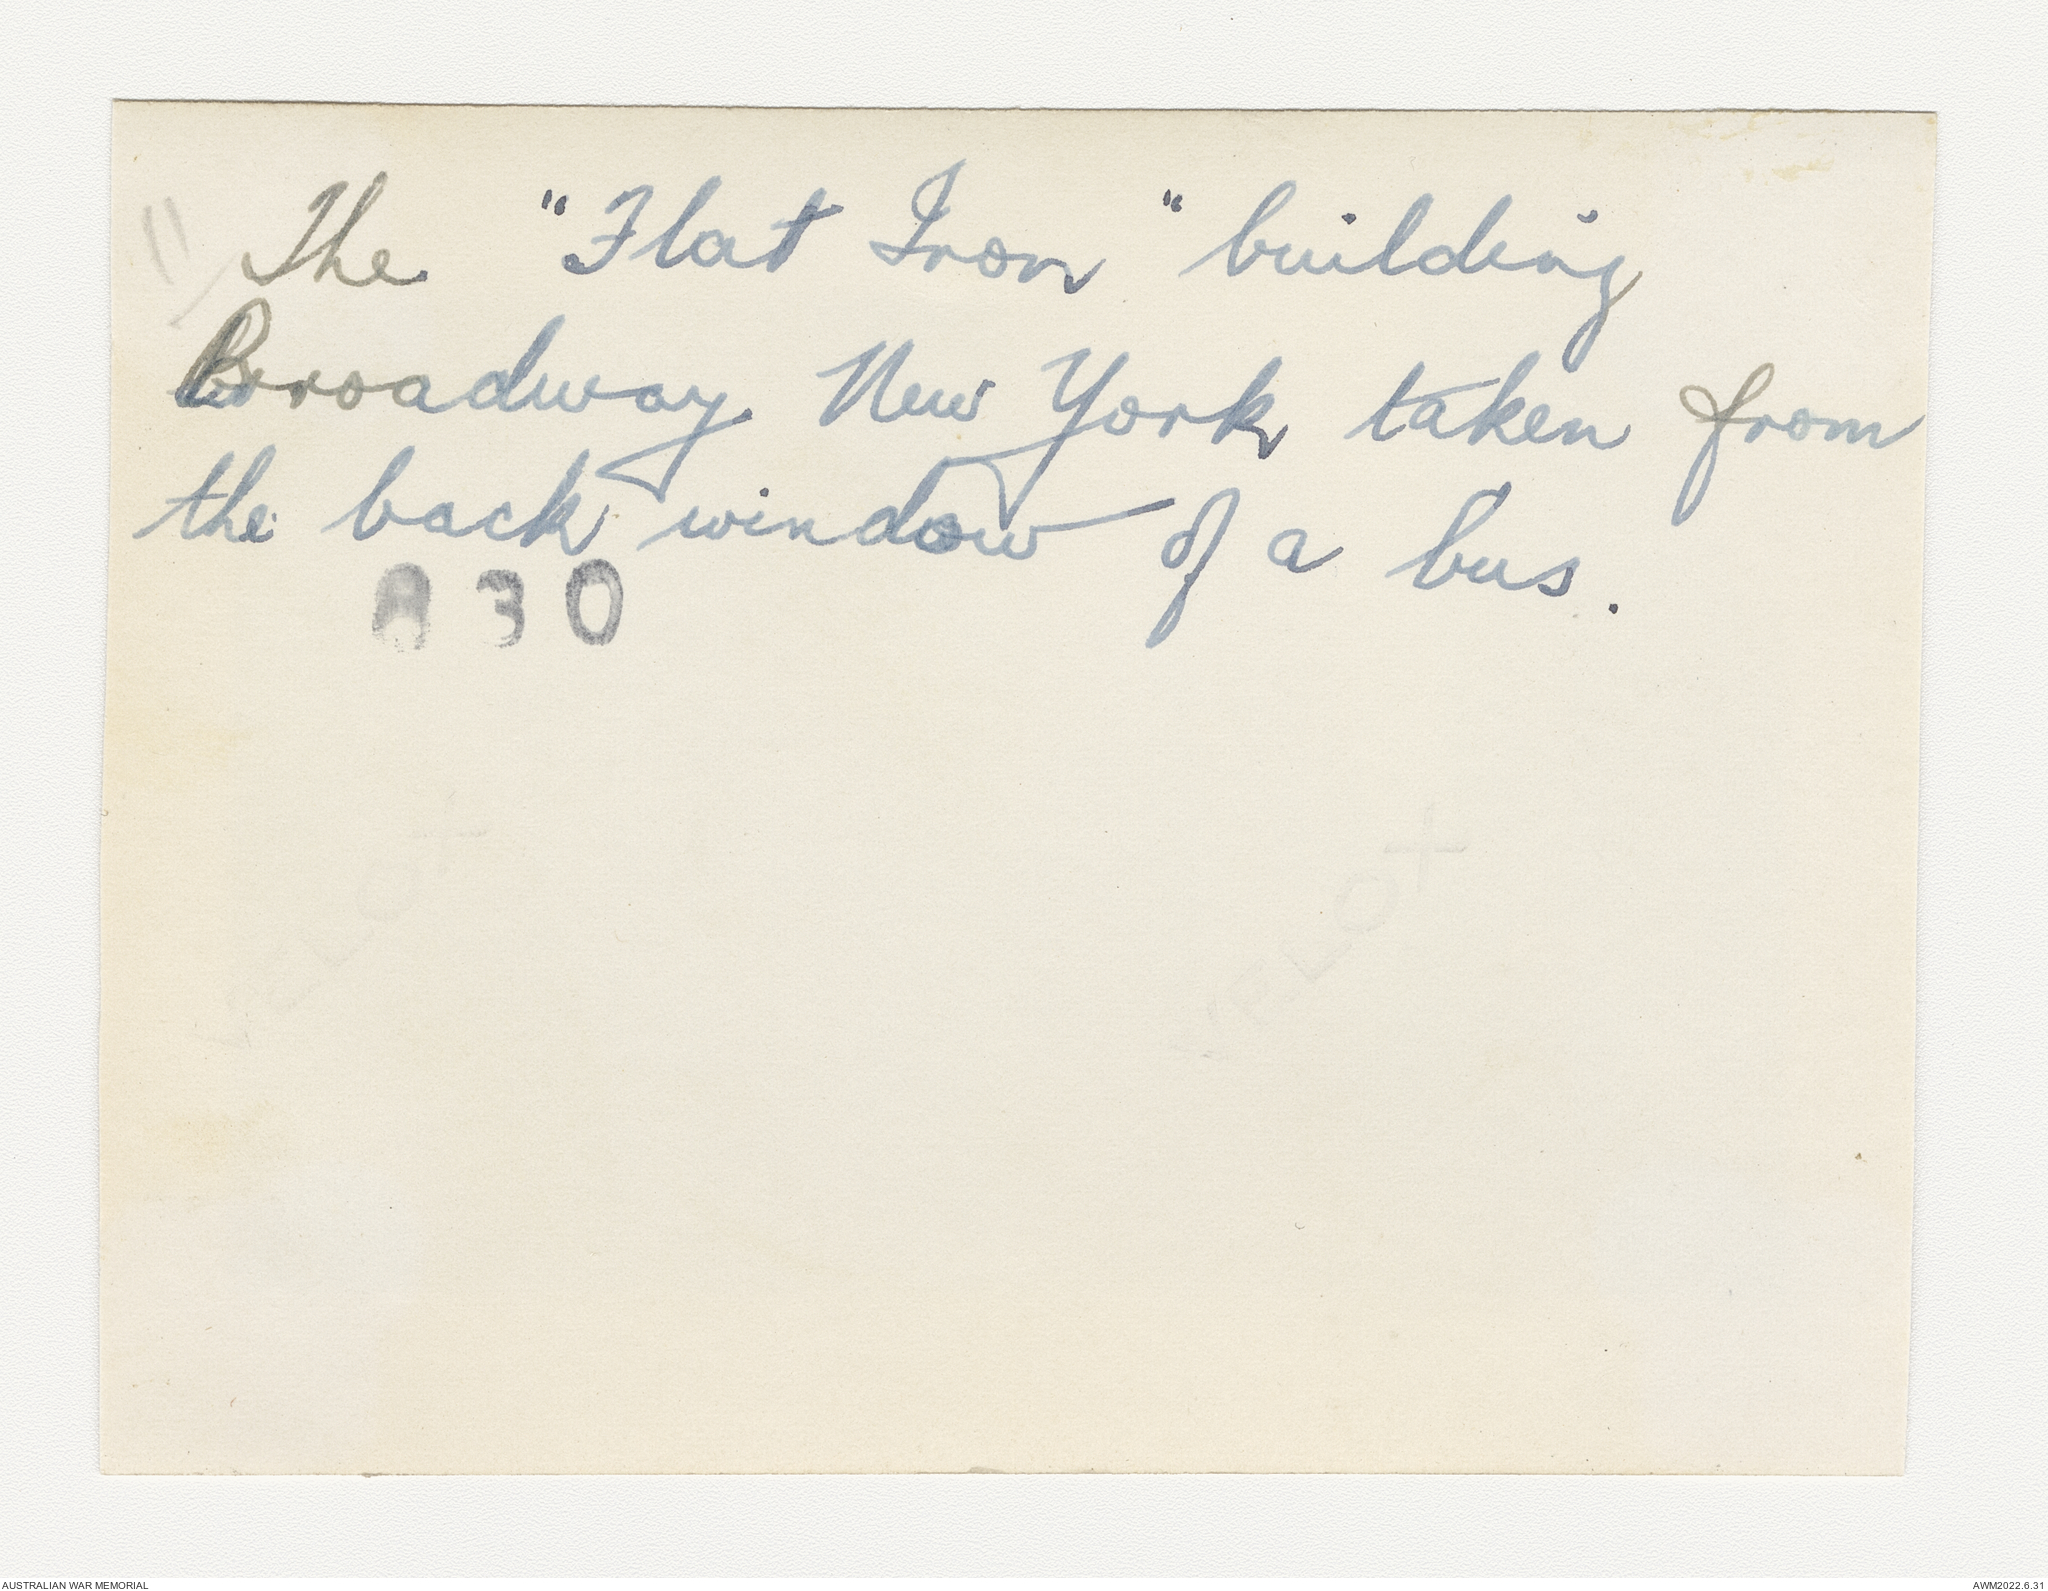 11
The "Flat Iron" building
Broadway New York taken from
the back window of a bus.
A30
VELOX
VELOX
AUSTRALIAN WAR MEMORIAL
AWM2022.6.31